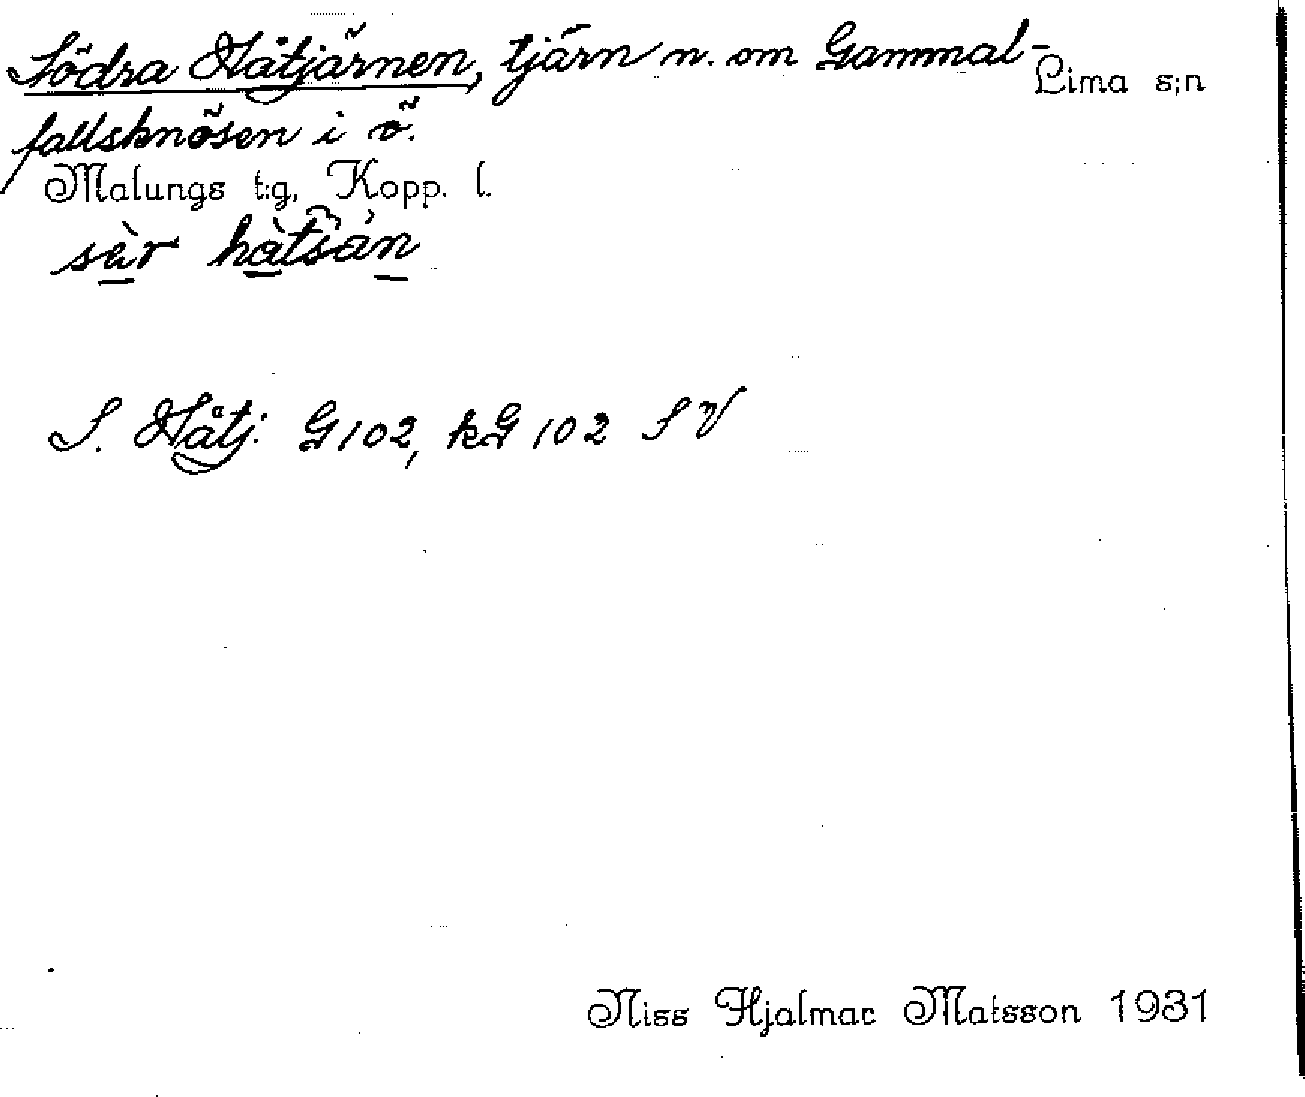 Södra Håtjärnen, tjärn n. om Gammal-
Lima s:n
fallsknösen i ö.
Malungs t:g, Kopp. l.
sèr hàtsàn
S. Håtj. G102, kG 102 SV
Niss Hjalmar Matsson 1931